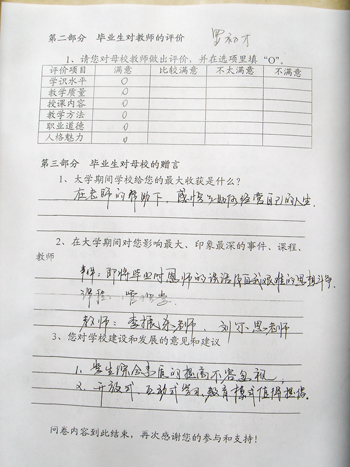 第二部分 毕业生对教师的评价
1、请您对母校教师做出评价，并在选项里填“O”。
评价项目 满意 比较满意 不太满意 不满意
学识水平 O
教学质量 O
授课内容 O
教学方法 O
职业道德 O
人格魅力 O
第三部分 毕业生对母校的赠言
1、大学期间学校给您的最大收获是什么？
在老师的帮助下，感悟如何经营自己的人生.
2、在大学期间对您影响最大、印象最深的事件、课程、
教师
事件：即将毕业时恩师的谈话
课程：
教师：李振 老师，刘 老师
3、您对学校建设和发展的意见和建议
1. 学生综合素质的提高不容忽视，
2. 开放式、互动式学习、教育模式值得提倡。
问卷内容到此结束，再次感谢您的参与和支持！